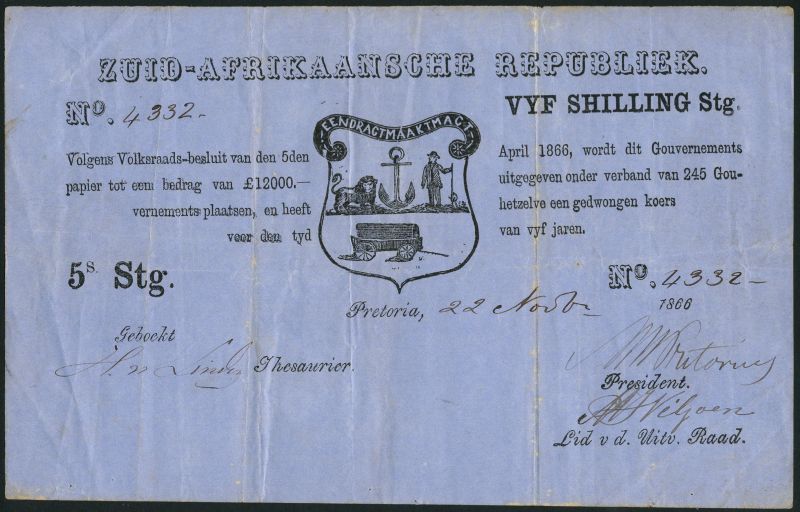 ZUID-AFRIKAANSCHE REPUBLIEK.
No. 4332.
VYF SHILLING Stg.
EENDRAGTMAAKTMAGT
Volgens Volksraads-besluit van den 5den April 1866, wordt dit Gouvernements
papier tot een bedrag van £12000.— uitgegeven onder verband van 245 Gou-
vernements plaatsen, en heeft hetzelve een gedwongen koers
voor den tyd van vyf jaren.
5s. Stg.
No. 4332-
Pretoria, 22 Novbr 1866
Geboekt
Thesaurier.
MWPretorius
President.
Viljoen
Lid v d. Uitv. Raad.